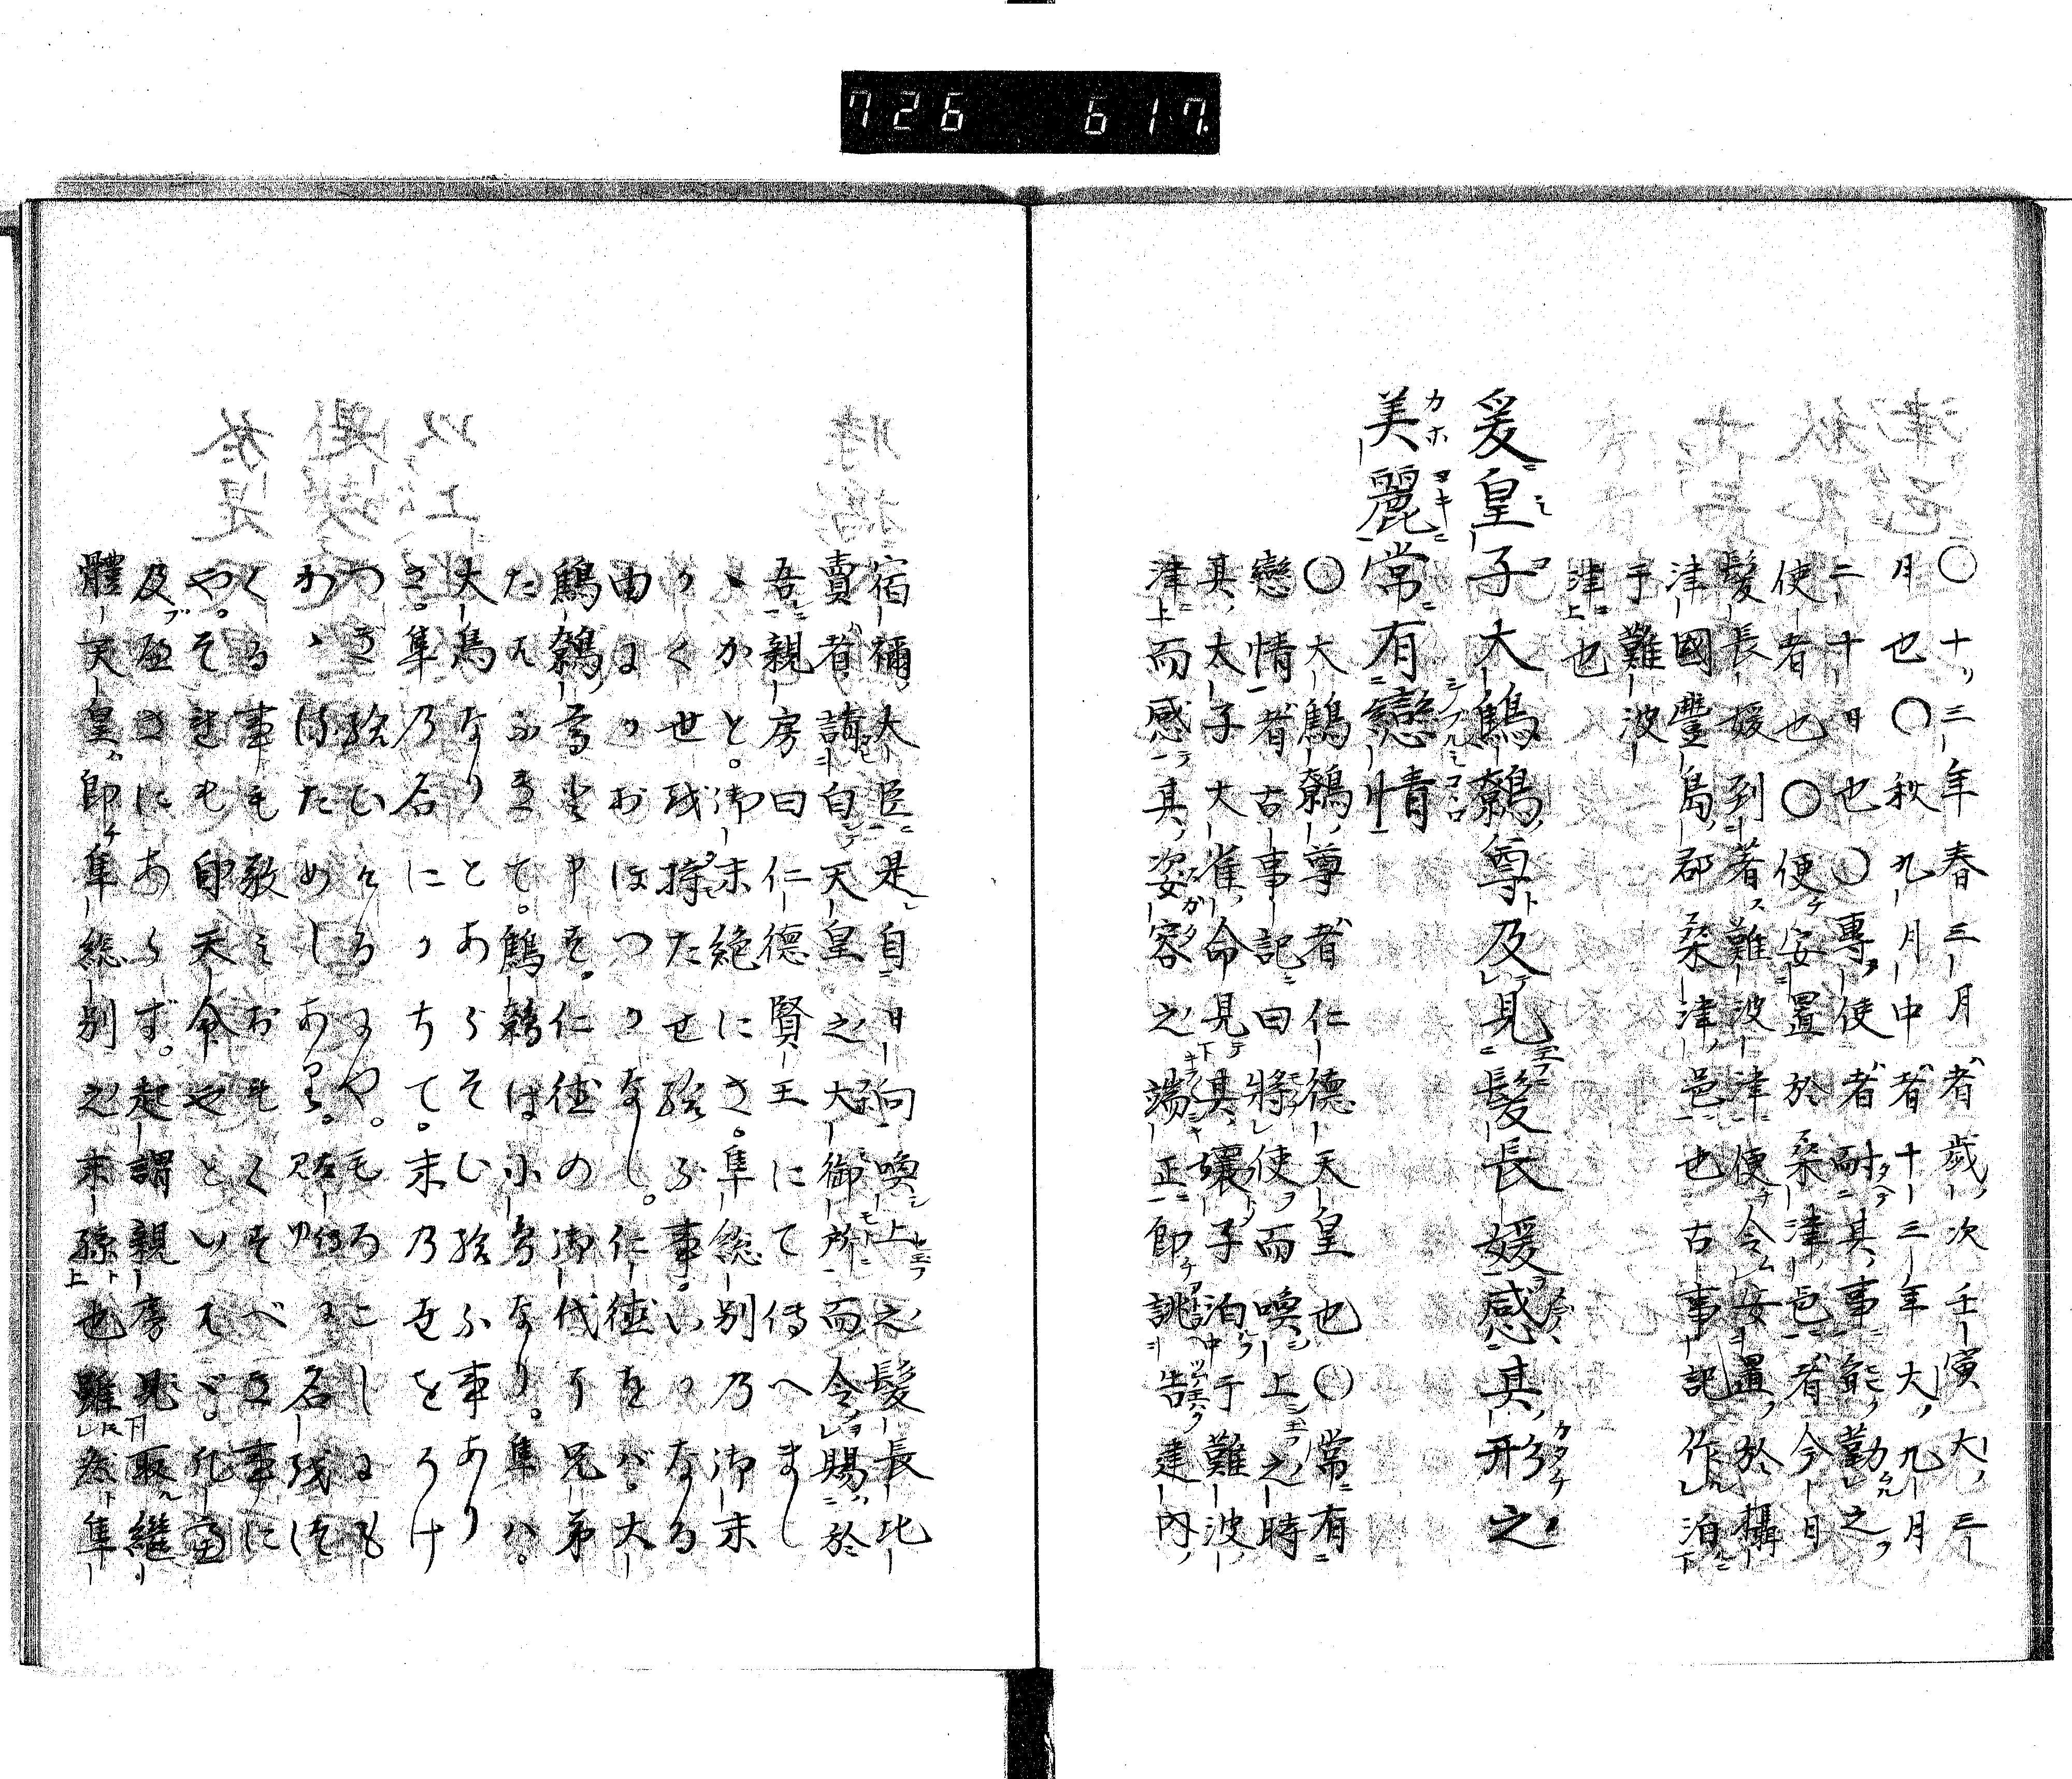 726 617.
○十三年春三月者歳次壬寅大三
月也○秋九月中者十三年大九月
二十日也○專使者耐其事能勤之
使者也○便安置於桑津邑者今日
髮長媛到著難波津便令安置於攝
津國豐島郡桑津邑也古事記作泊
于難波
津也
爰皇子大鷦鷯尊及見髮長媛感其形之
美麗常有戀情
○大鷦鷯尊者仁德天皇也○常有
戀情者古事記曰將使而喚上之時
其太子大雀命見其孃子泊于難波
津而感其姿容之端正即誂告建內
宿禰大臣是自日向喚上之髮長比
賣者請白天皇之大御所而令賜於
吾親房曰仁德賢王にて傳へまし
かと。御末絶にき。隼総別乃御末
かく世越持たせ給ふ事。いかなる
由にかおほつかなし。仁德をバ大
鷦鷯尊と申を。仁徳の御代に兄弟
たはふれて。鷦鷯は小鳥なり。隼ハ。
大鳥なりとあらそひ給ふ事あり
き。隼乃名にかちて。末乃世をうけ
つき給ひけるにや。もろこしにも
くる事も教ミおもくすべき事に
や。それも天命やといへど。凡
及ぶ
體天皇。即隼総別之末孫也雖然隼